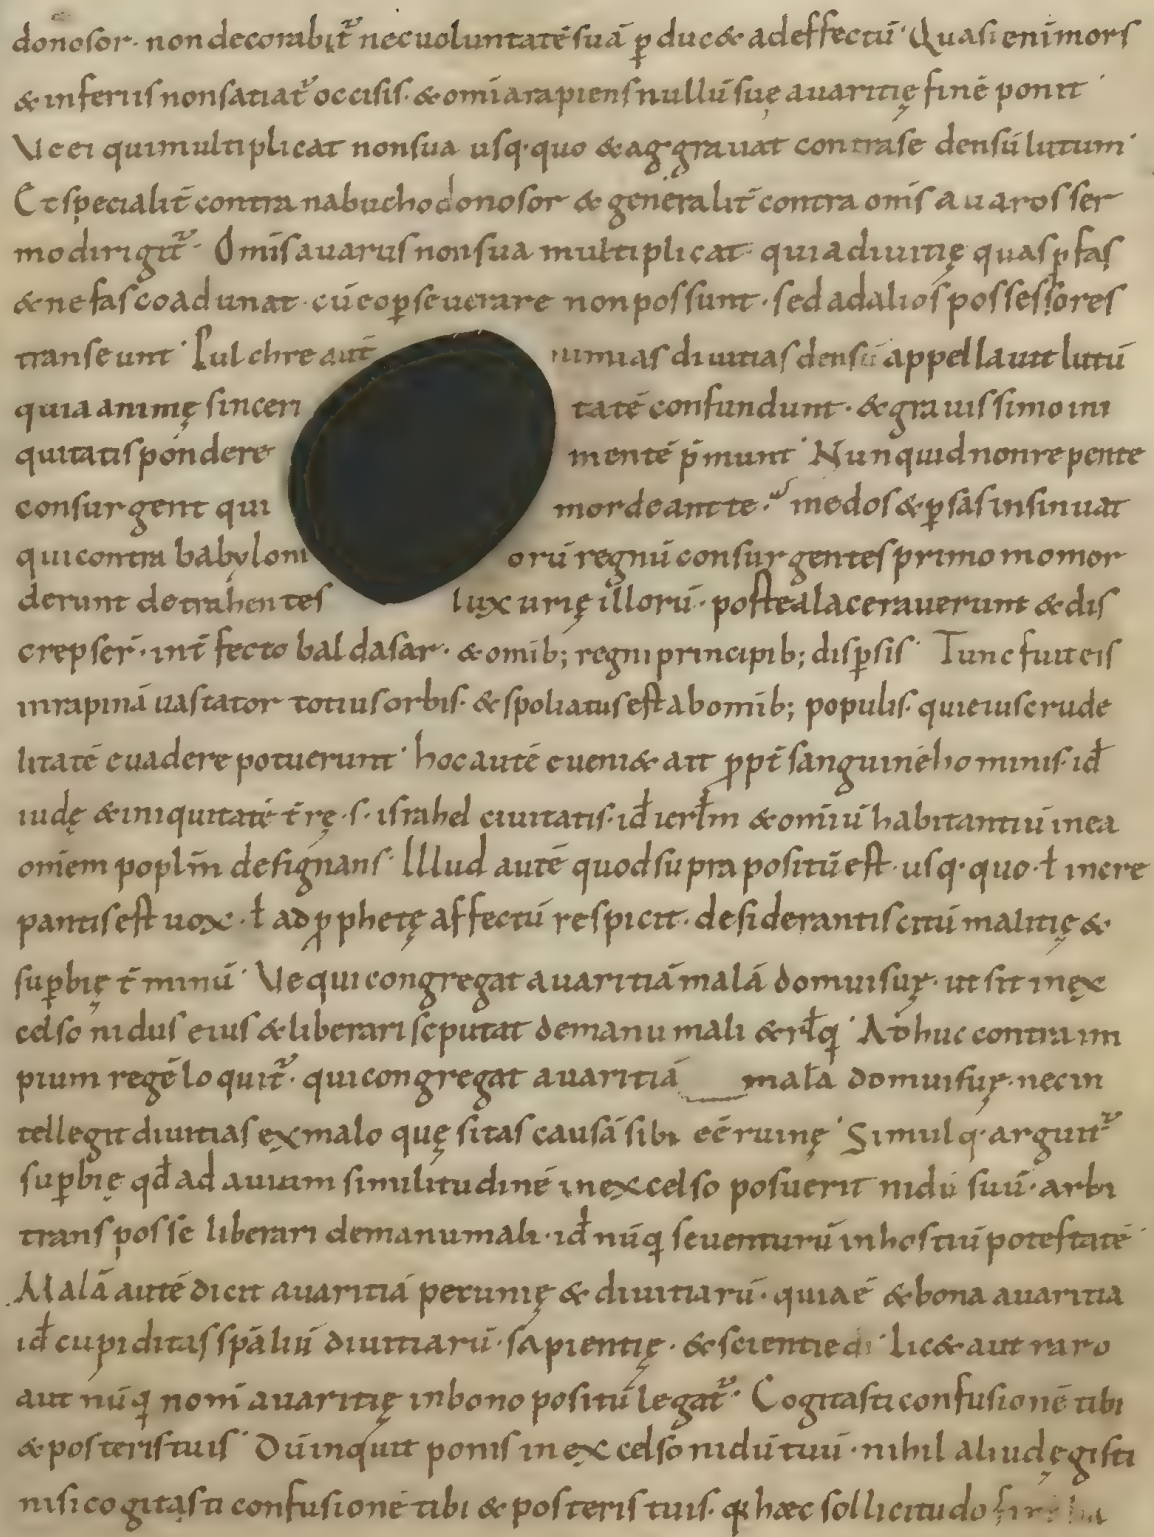 donosor· non decorabit᷑ nec uoluntatē suā ꝑduc& ad effectū· Quasi enī mors
& infernis non satiat᷑ occisis· & omīa rapiens nullū suę auaritię finē ponit·
Ve ei qui multiplicat non sua usq· quo & aggrauat contra se densū lutum·
Et specialit̄ contra nabuchodonosor & generalit̄ contra om̄is auaros ser
mo dirigit᷑· Om̄is auarus non sua multiplicat· quia diuitię quas ꝑ fas
& nefas coadunat· cū eo ꝑseuerare non possunt· sed ad alios possessores
transeunt· Pulchre aut̄ diuitias densū appellauit lutū
quia animę sinceri tatē confundunt· & grauissimo ini
quitatis pondere mentē p̄munt· Nunquid non repente
consurgent qui mordeant te· medos & ꝑsas insinuat
qui contra babyloni orū regnū consurgentes primo momor
derunt detrahentes luxurię illorū· postea lacerauerunt & dis
crepser̄· int̄fecto baldasar· & omib; regni principib; disꝑsis· Tunc fuit eis
in rapinā uastator totius orbis· & spoliatus est ab omib; populis· qui eius crude
litatē euadere potuerunt· hoc autē eueni& ait ꝓpt̄ sanguinē hominis· id̄
iudę & iniquitatē t̄rę· s· israhel ciuitatis· id̄ ierł̄m & omīū habitantiū in ea
om̄em popl̄m designans· Illud autē quod supra positū est· usq· quo· ł incre
pantis est uox· ł ad ꝓphetę affectū respicit· desiderantis citū malitię &
suꝑbię t̄minū· Ve qui congregat auaritiā malā domui suę· ut sit in ex
celso nidus eius & liberari se putat de manu mali & rł̄q· Adhuc contra im
pium regē loquit᷑· qui congregat auaritiā malā domui suę· nec in
tellegit diuitias ex malo quęsitas causā sibi eē ruinę· Simul q· arguit᷑
suꝑbię qd̄ ad auium similitudinē in excelso posuerit nidū suū· arbi
trans posse liberari de manu mali· id̄ nūq se uenturū in hostiū potestatē·
Malā autē dicit auaritiā pecunię & diuitiarū· quia ē & bona auaritia
id̄ cupiditas sp̄aliū diuitiarū· sapientię· & scientie di· lic& aut raro
aut nūq nom̄ auaritię in bono positū legat᷑· Cogitasti confusionē tibi
& posteris tuis· Dū inquit ponis in excelso nidū tuū· nihil aliud ęgisti
nisi cogitasti confusionē tibi & posteris tuis· q hæc sollicitudo